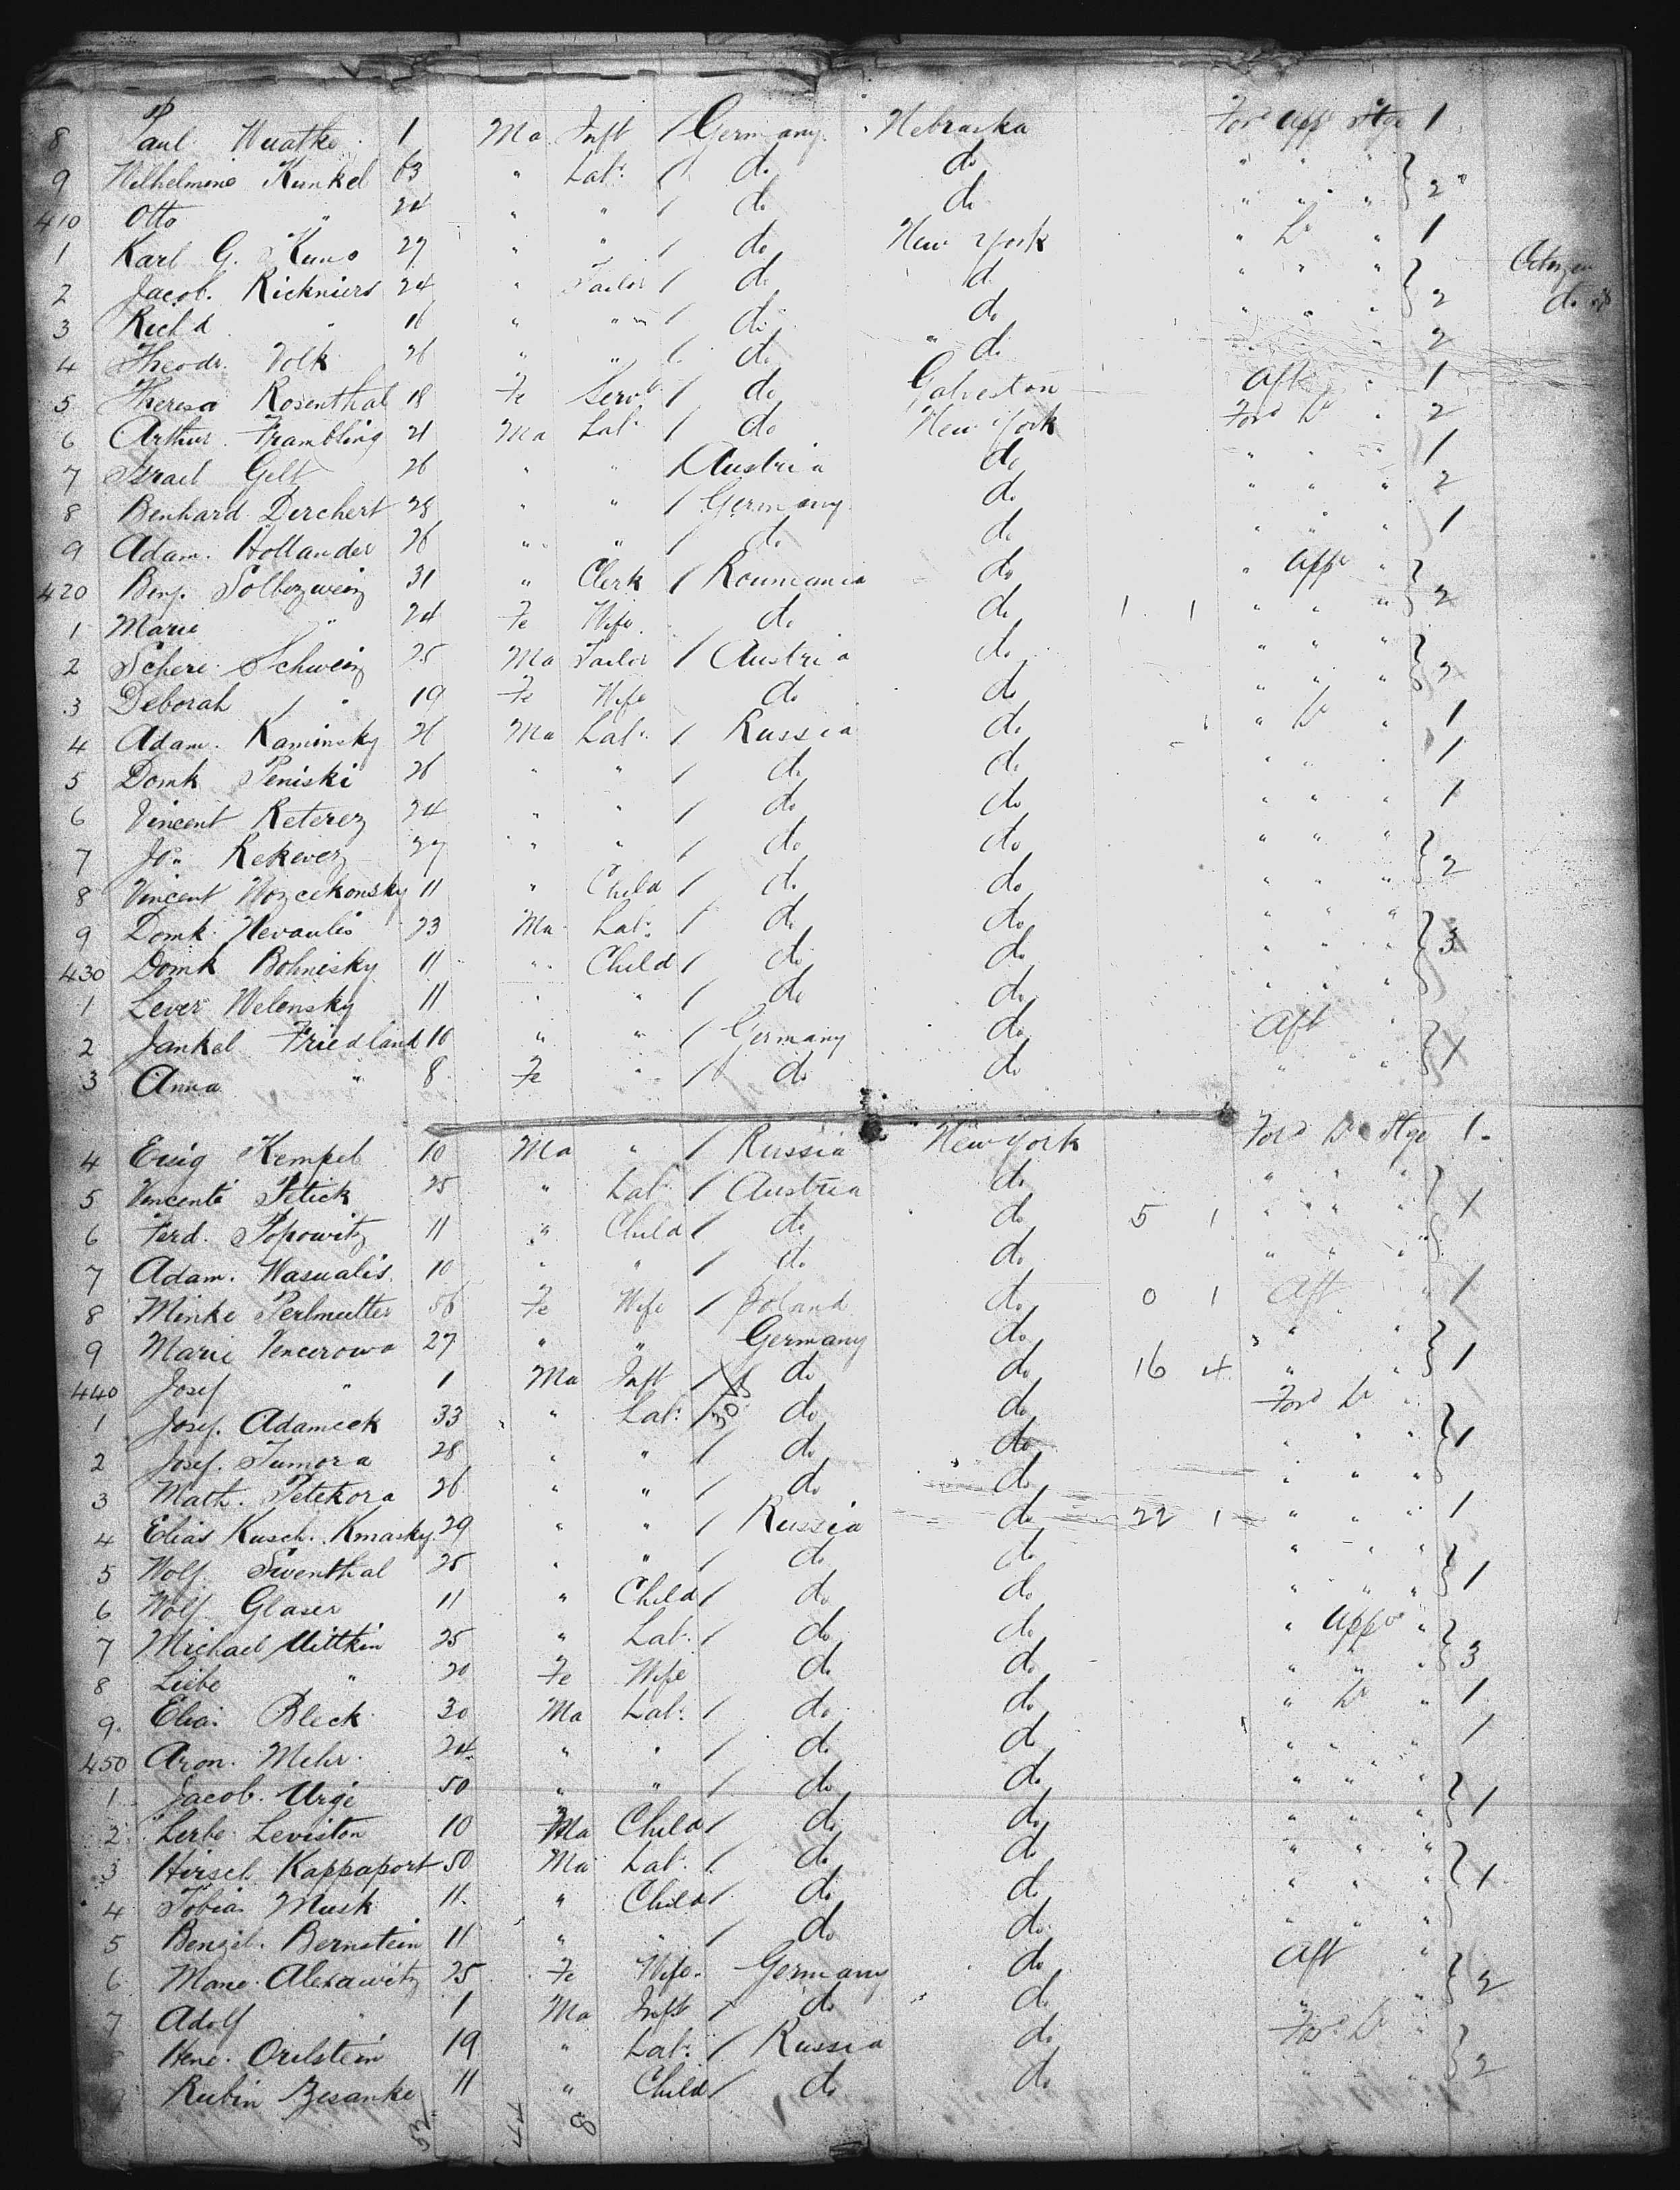 8 Paul Wuatke 1 Ma Inft / Germany Nebraska Ford Uppr Stge 1
9 Wilhelmine Kunkel 63 " Labr / do do " " " } 2
410 Otto " 24 " " / do do " " "
1 Karl G. Kuns 27 " " / do New York " Lr " 1
2 Jacob. Rickniers 24 " Tailor / do do " " " } 2
3 Richd " 16 " " / do do " " "
4 Theodr. Volk 26 " " / do do 2
5 Theresa Rosenthal 18 Fe Servt / do Galveston Aft " 1
6 Arthur Frambling 21 Ma Labr / do New York Ford Lr " 2
7 Israel Gelt 26 " " / Austria do " " " 1
8 Benhard Derchert 28 " " / Germany do " " " 2
9 Adam. Hollander 26 " " / do do " " " 1
420 Benj. Solbezweig 31 " Clerk / Roumania do " Uppr " } 2
1 Marie " 24 Fe Wife do do 1 1 " " "
2 Schere Schweig 25 Ma Tailor / Austria do " " " } 2
3 Deborah " 19 Fe Wife do do " " "
4 Adam. Kaminsky 26 Ma Labr / Russia do " Lr " 1
5 Domk Peniski 26 " " / do do " " " 1
6 Vincent Reterez 24 " " / do do " " " 1
7 Jos Rekevez 27 " " / do do " " " } 2
8 Vincent Wozcekonsky 11 " Child / do do " " "
9 Domk Nevaulis 23 Ma Labr / do do " " " } 3
430 Domk Bohnisky 11 " Child / do do " " "
1 Lever Welensky 11 " " / do do " " "
2 Jankel Friedland 10 " " / Germany do Aft " } 1
3 Anna " 8 Fe " / do do " "
4 Eisig Kempel 10 Ma " / Russia New York Ford Lr Stge 1
5 Vincenté Petick 25 " Labr / Austria do " " " } 1
6 Ferd. Popowitz 11 " Child / do do 5 1 " " "
7 Adam. Wasualis 10 " " / do do " " "
8 Minke Perlmutter 56 Fe Wife / Poland do 0 1 Aft " 1
9 Marie Vencerowa 27 " " Germany do " " } 1
440 Josef " 1 Ma Inft / do do 16 4 " "
1 Josef. Adamcek 33 " Labr / 30 do do Ford Lr "
2 Josef. Tumora 28 " " / do do " " " } 1
3 Math. Petekora 26 " " / do do " " "
4 Elias Kusch. Kmasky 29 " " / Russia do 22 1 " " " 1
5 Wolf Siventhal 25 " " / do do " " " } 1
6 Wolf Glaser 11 " Child / do do " " "
7 Michael Uittkin 25 " Labr / do do " Uppr " } 3
8 Liebe " 20 Fe Wife do do " " "
9 Elias Bleck 30 Ma Labr / do do " Lr " 1
450 Aron. Mehr 24 " " / do do " " " 1
1 Jacob. Urge 50 " " / do do " " " } 1
2 Lerbe Leviston 10 Ma Child / do do " " "
3 Hirsch Kappaport 50 Ma Labr / do do " " " } 1
4 Tobias Musk 11 " Child / do do " " "
5 Benzel. Bernstein 11 " " / do do " " "
6 Marie Alexawitz 25 Fe Wife Germany do Aft " } 2
7 Adolf " 1 Ma Inft / do do " "
Hene. Orelstein 19 " Labr / Russia do Ford Lr " } 2
Rubin Besanke 11 " Child / do do " " "